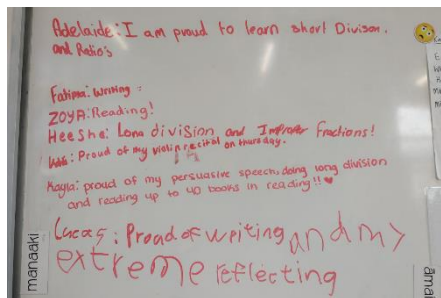 Adelaide: I am proud to learn short Divison.
and Ratio's
Fatima: Writing
ZOYA: Reading!
HeeShe: Long division and Improper fractions!
: Proud of my violin recital on thursday.
Kayla: proud of my persuasive speech, doing long division
and reading up to 40 books in reading!!
Lucas: Proud of writing and my
extreme reflecting
manaaki